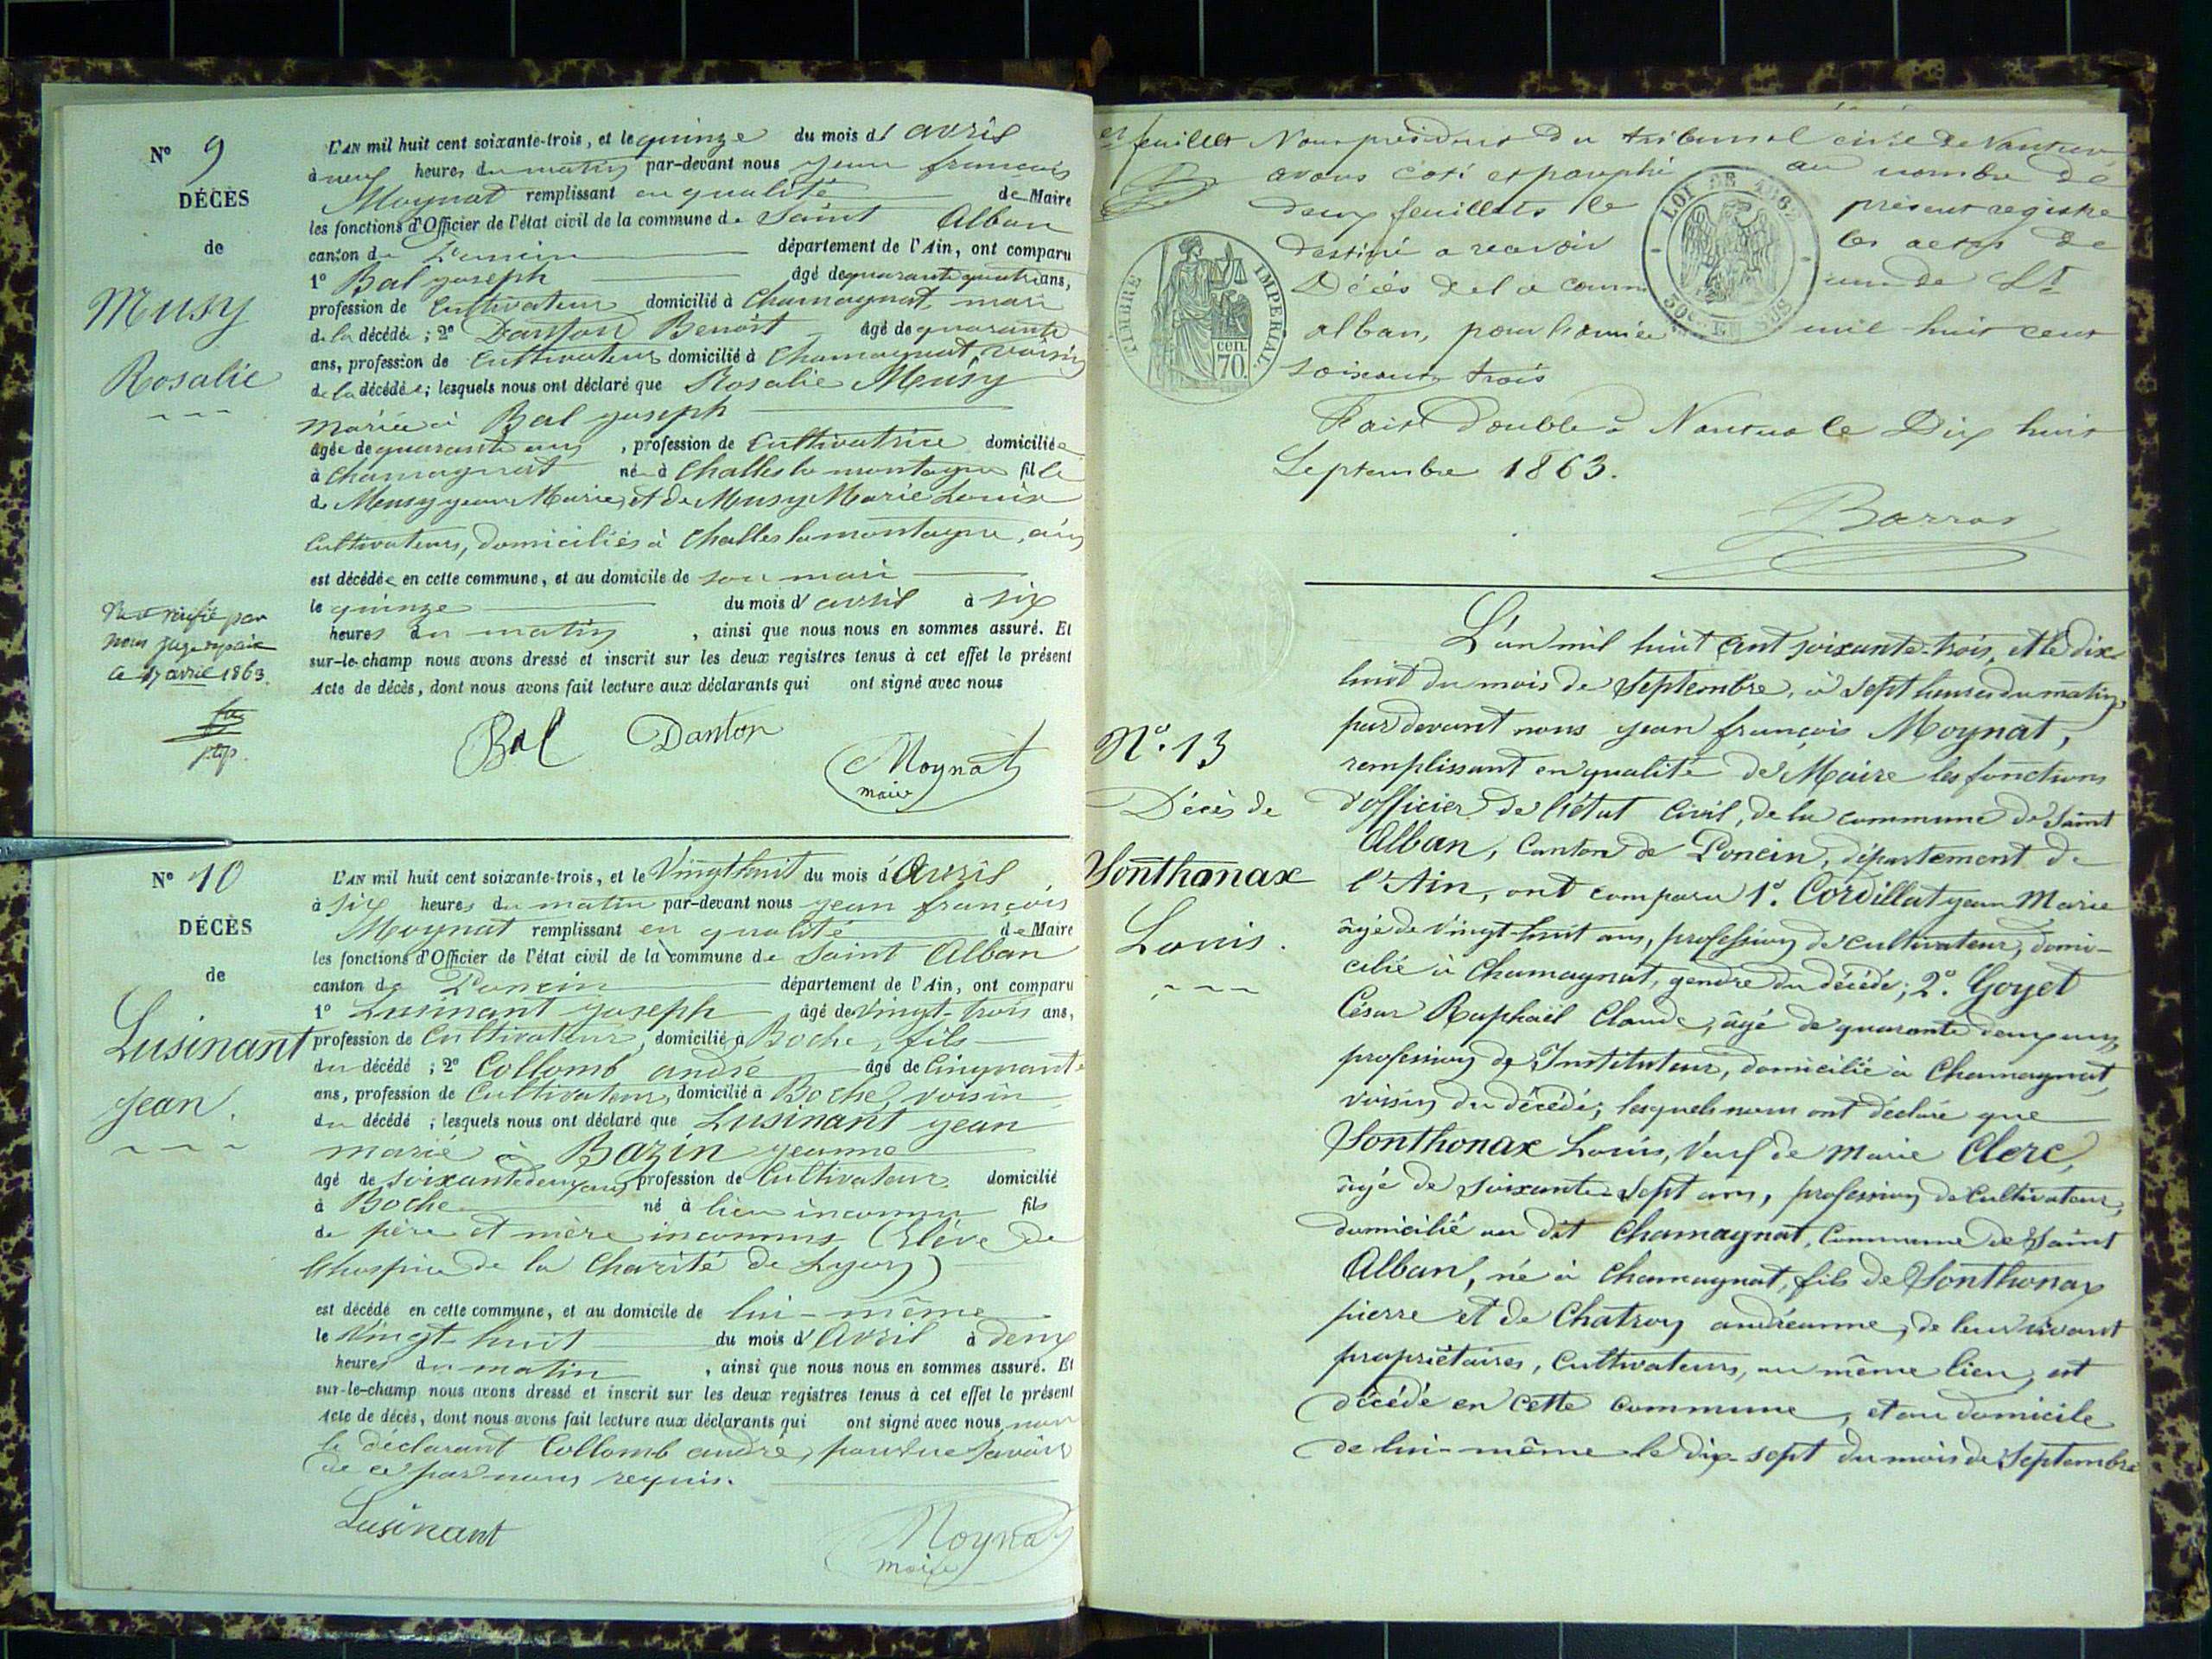 N° 9
DÉCÈS
de
Musy
Rosalie
L'AN mil huit cent soixante-trois, et le quinze du mois d'avril
à neuf heures du matin par-devant nous jean françois
Moynat remplissant en qualité de Maire
les fonctions d'Officier de l'état civil de la commune de Saint Alban
canton de Poncin département de l'Ain, ont comparu
1° Bal joseph âgé de quarante quatre ans,
profession de Cultivateur domicilié à Chamagnat, mari
de la décédée ; 2° Danton Benoît âgé de quarante
ans, profession de Cultivateur domicilié à Chamagnat, voisin
de la décédée ; lesquels nous ont déclaré que Rosalie Musy
mariée à Bal joseph
âgée de quarante ans , profession de Cultivatrice domiciliée
à Chamagnat née à Challes la montagne fille
de Musy jean Marie, et de Musy Marie Louise
Cultivateurs, domiciliés à Challes la montagne, ain
est décédée en cette commune, et au domicile de son mari
le quinze du mois d'avril à six
heures du matin , ainsi que nous nous en sommes assuré. Et
sur-le-champ nous avons dressé et inscrit sur les deux registres tenus à cet effet le présent
Acte de décès, dont nous avons fait lecture aux déclarants qui ont signé avec nous
Vu et vérifié par
nous juge de paix
le 17 avril 1863.
Bal Danton
Moynat
maire
N° 10
DÉCÈS
de
Lusinant
jean.
L'AN mil huit cent soixante-trois, et le Vingt huit du mois d'Avril
à six heures du matin par-devant nous jean françois
Moynat remplissant en qualité de Maire
les fonctions d'Officier de l'état civil de la commune de Saint Alban
canton de Poncin département de l'Ain, ont comparu
1° Lusinant joseph âgé de vingt-trois ans,
profession de Cultivateur, domicilié à Boche, fils
du décédé ; 2° Collomb andré âgé de Cinquante
ans, profession de Cultivateur, domicilié à Boche, voisin
du décédé ; lesquels nous ont déclaré que Lusinant jean
marié à Bazin jeanne
âgé de soixante deux ans profession de Cultivateur domicilié
à Boche né à lieu inconnu fils
de père et mère inconnus (Elève de
l'hospice de la Charité de Lyon)
est décédé en cette commune, et au domicile de lui-même
le Vingt huit du mois d'Avril à deux
heures du matin , ainsi que nous nous en sommes assuré. Et
sur-le-champ nous avons dressé et inscrit sur les deux registres tenus à cet effet le présent
Acte de décès, dont nous avons fait lecture aux déclarants qui ont signé avec nous, non
le déclarant Collomb andré, pour ne savoir
de ce par nous requis.
Lusinant
Moynat
maire
feuillet Nous président du tribunal civil de Nantua
avons coté et paraphé au nombre de
deux feuillets le présent registre
destiné a recevoir les actes de
Décès de la commune de St
alban, pour l'année mil huit cent
soixante trois
Fait Double à Nantua le Dix huit
Septembre 1863.
Barras
TIMBRE IMPERIAL
cen.
70.
LOI DE 1862
50c EN SUS
N°. 13
Décès de
Sonthonax
Louis.
L'an mil huit cent soixante-trois, et le dix
huit du mois de Septembre, à sept heures du matin,
par devant nous jean françois Moynat,
remplissant en qualité de Maire les fonctions
d'officier de l'état civil, de la commune de Saint
Alban, Canton de Poncin, département de
l'Ain, ont comparu 1°. Cordillat jean Marie
âgé de Vingt-huit ans, profession de cultivateur, domi-
cilié à Chamagnat, gendre du décédé ; 2°. Goyet
César Raphaël Claude, âgé de quarante deux ans,
profession de Instituteur, domicilié à Chamagnat,
voisin du décédé, lesquels nous ont déclaré que
Sonthonax Louis, Veuf de Marie Clerc,
âgé de soixante-sept ans, profession de Cultivateur,
domicilié au dit Chamagnat, Commune de Saint
Alban, né à Chamagnat, fils de Sonthonax
pierre et de Chatron andréanne, de leur vivant
propriétaires, Cultivateurs, au même lieu, est
décédé en cette commune, et au domicile
de lui-même le dix-sept du mois de Septembre